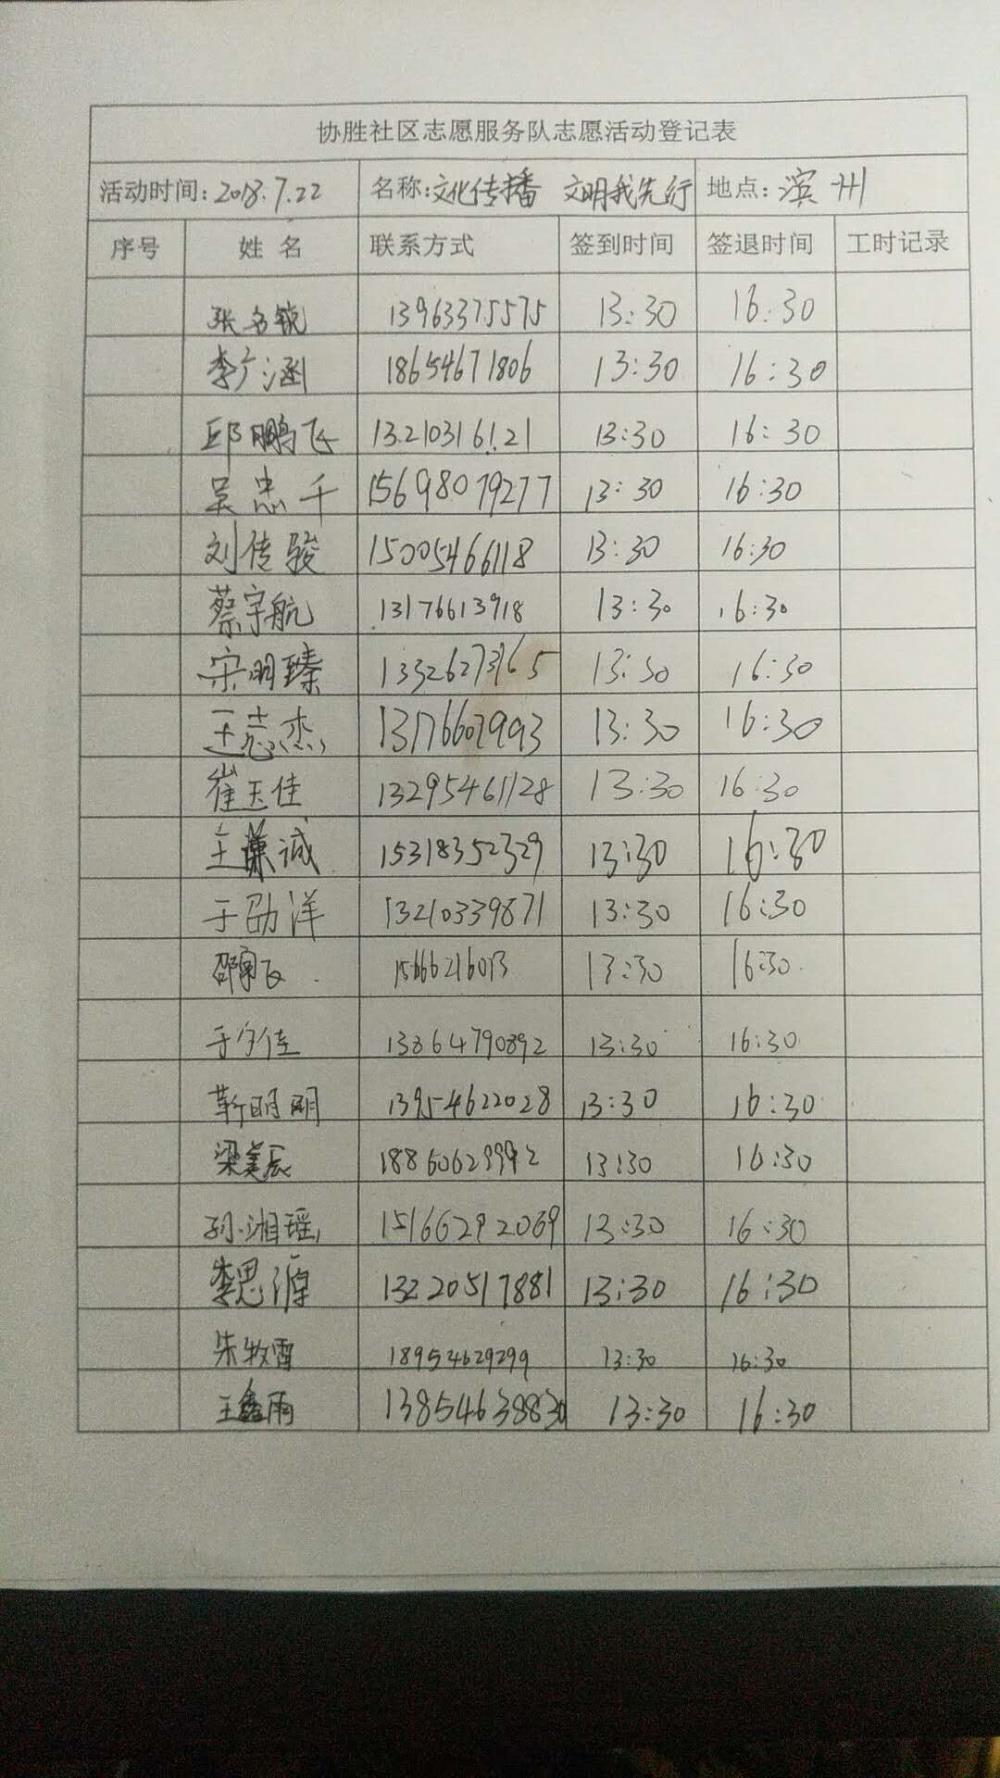 协胜社区志愿服务队志愿活动登记表
活动时间:2018.7.22 名称:文化传播 文明我先行 地点:滨州
序号 姓名 联系方式 签到时间 签退时间 工时记录
张名锐 13963375575 13:30 16:30
李广涵 18654671806 13:30 16:30
邱鹏飞 13210316121 13:30 16:30
吴忠千 15698079277 13:30 16:30
刘传骏 15005466118 13:30 16:30
蔡宇航 13176613918 13:30 16:30
宋明臻 13326273165 13:30 16:30
王志杰 13176607993 13:30 16:30
崔玉佳 13295461128 13:30 16:30
王谦诚 15318352329 13:30 16:30
于劭洋 13210339871 13:30 16:30
邵 飞 15666216013 13:30 16:30
于宁佳 13864790892 13:30 16:30
靳明明 13954622028 13:30 16:30
梁美辰 13:30 16:30
孙湘瑶 15166292069 13:30 16:30
李思源 13220517881 13:30 16:30
朱牧雷 18954629299 13:30 16:30
王鑫雨 13854638830 13:30 16:30